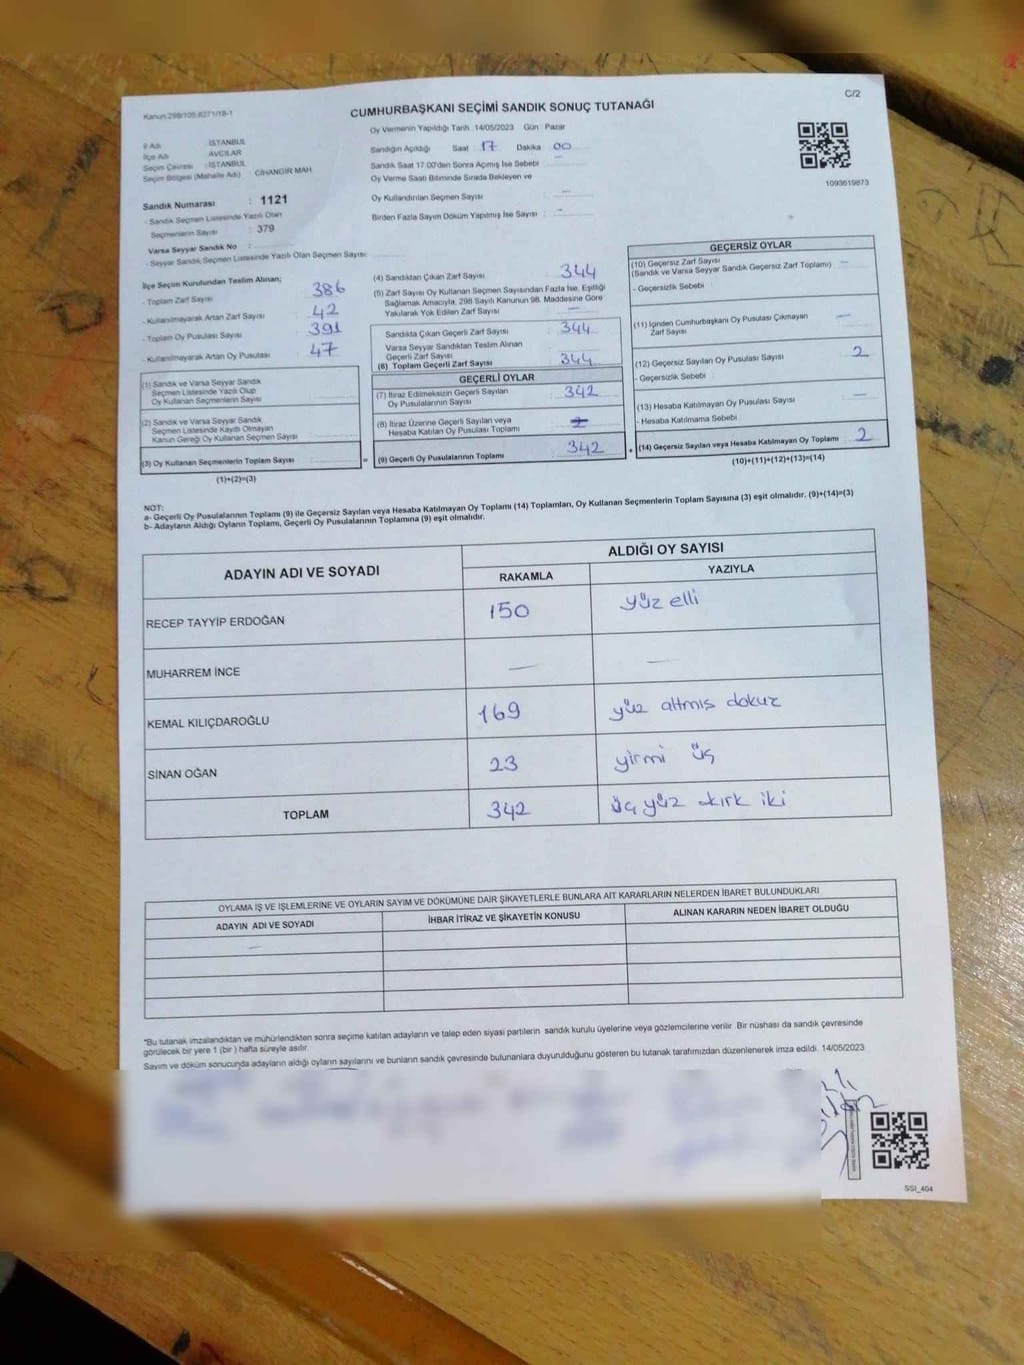 C/2
Kanun:298/105,6271/18-1
CUMHURBAŞKANI SEÇİMİ SANDIK SONUÇ TUTANAĞI
Oy Vermenin Yapıldığı Tarih :14/05/2023 Gün : Pazar
İl Adı : İSTANBUL
İlçe Adı : AVCILAR
Seçim Çevresi : İSTANBUL
Seçim Bölgesi (Mahalle Adı) : CİHANGİR MAH
Sandığın Açıldığı Saat 17 Dakika 00
Sandık Saat 17:00'den Sonra Açılmış İse Sebebi : —
Oy Verme Saati Bitiminde Sırada Bekleyen ve
Oy Kullandırılan Seçmen Sayısı : —
Birden Fazla Sayım Döküm Yapılmış İse Sayısı : —
1093619873
Sandık Numarası : 1121
- Sandık Seçmen Listesinde Yazılı Olan
Seçmenlerin Sayısı : 379
Varsa Seyyar Sandık No :
- Seyyar Sandık Seçmen Listesinde Yazılı Olan Seçmen Sayısı:
İlçe Seçim Kurulundan Teslim Alınan;
- Toplam Zarf Sayısı : 386
- Kullanılmayarak Artan Zarf Sayısı : 42
- Toplam Oy Pusulası Sayısı : 391
- Kullanılmayarak Artan Oy Pusulası : 47
(1) Sandık ve Varsa Seyyar Sandık
Seçmen Listesinde Yazılı Olup
Oy Kullanan Seçmenlerin Sayısı :
(2) Sandık ve Varsa Seyyar Sandık
Seçmen Listesinde Kayıtlı Olmayan
Kanun Gereği Oy Kullanan Seçmen Sayısı :
(3) Oy Kullanan Seçmenlerin Toplam Sayısı :
(1)+(2)=(3)
(4) Sandıktan Çıkan Zarf Sayısı : 344
(5) Zarf Sayısı Oy Kullanan Seçmen Sayısından Fazla İse, Eşitliği
Sağlamak Amacıyla, 298 Sayılı Kanunun 98. Maddesine Göre
Yakılarak Yok Edilen Zarf Sayısı : —
Sandıkta Çıkan Geçerli Zarf Sayısı : 344
Varsa Seyyar Sandıktan Teslim Alınan
Geçerli Zarf Sayısı :
(6) Toplam Geçerli Zarf Sayısı : 344
GEÇERLİ OYLAR
(7) İtiraz Edilmeksizin Geçerli Sayılan
Oy Pusulalarının Sayısı : 342
(8) İtiraz Üzerine Geçerli Sayılan veya
Hesaba Katılan Oy Pusulası Toplamı :
= (9) Geçerli Oy Pusulalarının Toplamı : 342
GEÇERSİZ OYLAR
(10) Geçersiz Zarf Sayısı : —
(Sandık ve Varsa Seyyar Sandık Geçersiz Zarf Toplamı)
- Geçersizlik Sebebi :
(11) İçinden Cumhurbaşkanı Oy Pusulası Çıkmayan
Zarf Sayısı : —
(12) Geçersiz Sayılan Oy Pusulası Sayısı : 2
- Geçersizlik Sebebi :
(13) Hesaba Katılmayan Oy Pusulası Sayısı : —
- Hesaba Katılmama Sebebi :
+ (14) Geçersiz Sayılan veya Hesaba Katılmayan Oy Toplamı : 2
(10)+(11)+(12)+(13)=(14)
NOT:
a- Geçerli Oy Pusulalarının Toplamı (9) ile Geçersiz Sayılan veya Hesaba Katılmayan Oy Toplamı (14) Toplamları, Oy Kullanan Seçmenlerin Toplam Sayısına (3) eşit olmalıdır. (9)+(14)=(3)
b- Adayların Aldığı Oyların Toplamı, Geçerli Oy Pusulalarının Toplamına (9) eşit olmalıdır.
ADAYIN ADI VE SOYADI ALDIĞI OY SAYISI
RAKAMLA YAZIYLA
RECEP TAYYİP ERDOĞAN 150 yüz elli
MUHARREM İNCE — —
KEMAL KILIÇDAROĞLU 169 yüz altmış dokuz
SİNAN OĞAN 23 yirmi üç
TOPLAM 342 üç yüz kırk iki
OYLAMA İŞ VE İŞLEMLERİNE VE OYLARIN SAYIM VE DÖKÜMÜNE DAİR ŞİKAYETLERLE BUNLARA AİT KARARLARIN NELERDEN İBARET BULUNDUKLARI
ADAYIN ADI VE SOYADI İHBAR İTİRAZ VE ŞİKAYETİN KONUSU ALINAN KARARIN NEDEN İBARET OLDUĞU
—
*Bu tutanak imzalandıktan ve mühürlendikten sonra seçime katılan adayların ve talep eden siyasi partilerin sandık kurulu üyelerine veya gözlemcilerine verilir. Bir nüshası da sandık çevresinde
görülecek bir yere 1 (bir ) hafta süreyle asılır.
Sayım ve döküm sonucunda adayların aldığı oyların sayılarını ve bunların sandık çevresinde bulunanlara duyurulduğunu gösteren bu tutanak tarafımızdan düzenlenerek imza edildi. 14/05/2023
SSI_404